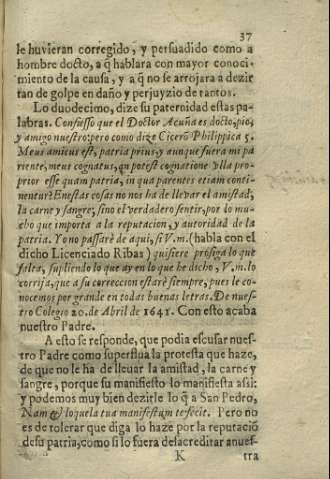 37
le huvieran corregido, y persuadido como a
hombre docto, a q̃ hablara con mayor conoci-
miento de la causa, y a q̃ no se arrojara a dezir
tan de golpe en daño y perjuyzio de tantos.
Lo duodecimo, dize su paternidad estas pa-
labras. Confiesso que el Doctor Acuña es docto, pio,
y amigo nuestro: pero como dize Cicerõ Philippica 5.
Meus amicus est, patria prius, y aunque fuera mi pa
riente, meus cognatus, qn potest cognatione vlla pro-
prior esse quam patria, in qua parentes etiam conti-
nentur? En estas cosas no nos ha de lleuar el amistad,
la carne y sangre; sino el verdadero sentir, por lo mu-
cho que importa a la reputacion, y autoridad de la
patria. Yo no passarè de aqui, si V.m. (habla con el
dicho Licenciado Ribas) quisiere prosiga lo que
falta, supliendo lo que ay en lo que he dicho, V.m. lo
corrija, que a su correccion estarè siempre, pues le co-
nocemos por grande en todas buenas letras. De nues-
tro Colegio 20. de Abril de 1641. Con esto acaba
nuestro Padre.
A esto se responde, que podia escusar nues-
tro Padre como superflua la protesta que haze,
de que no le ha de lleuar la amistad, la carne y
sangre, porque su manifiesto lo manifiesta assi:
y podemos muy bien dezirle lo q̃ a San Pedro,
Nam & loquela tua manifestum te fecit. Pero no
es de tolerar que diga lo haze por la reputaciõ
de su patria, como si lo fuera desacreditar a nues-
K tra